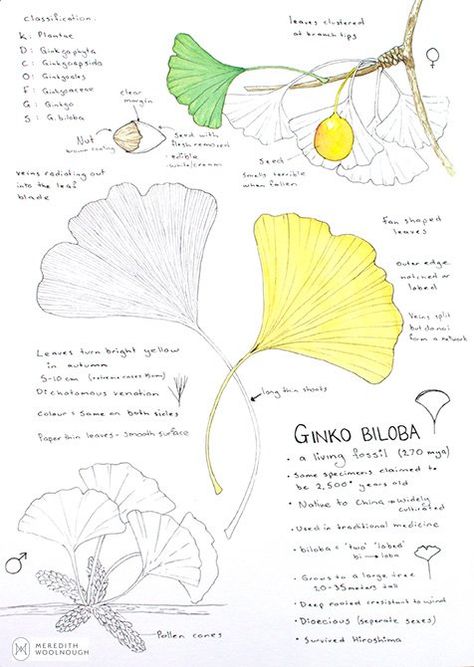 classification:
K: Plantae
D: Ginkgophyta
C: Ginkgoopsida
O: Ginkgoales
F: Ginkgaceae
G: Ginkgo
S: G. biloba
leaves clustered
at branch tips
♀
clear
margin
Nut
brown coating
Seed with
flesh removed
- edible
- white/cream
Seed-
Smells terrible
when fallen
veins radiating out
into the leaf
blade
Fan shaped
leaves
outer edge
notched or
lobed
Veins split
but do not
form a network
Leaves turn bright yellow
in autumn
5-10 cm (extreme cases 15cm)
Dichotomous venation
Colour = Same on both sides
Paper thin leaves - smooth surface
long thin shoots
GINKO BILOBA
• a living fossil (270 mya)
• Some specimens claimed to
be 2,500* years old
• Native to China → widely
cultivated
• Used in traditional medicine
• biloba = 'two' 'lobed'
bi loba
• Grows to a large tree
20-35 meters tall
• Deep rooted + resistant to wind
• Dioecious (seperate sexes)
• Survived Hiroshima
♂
Pollen cones
MEREDITH
WOOLNOUGH